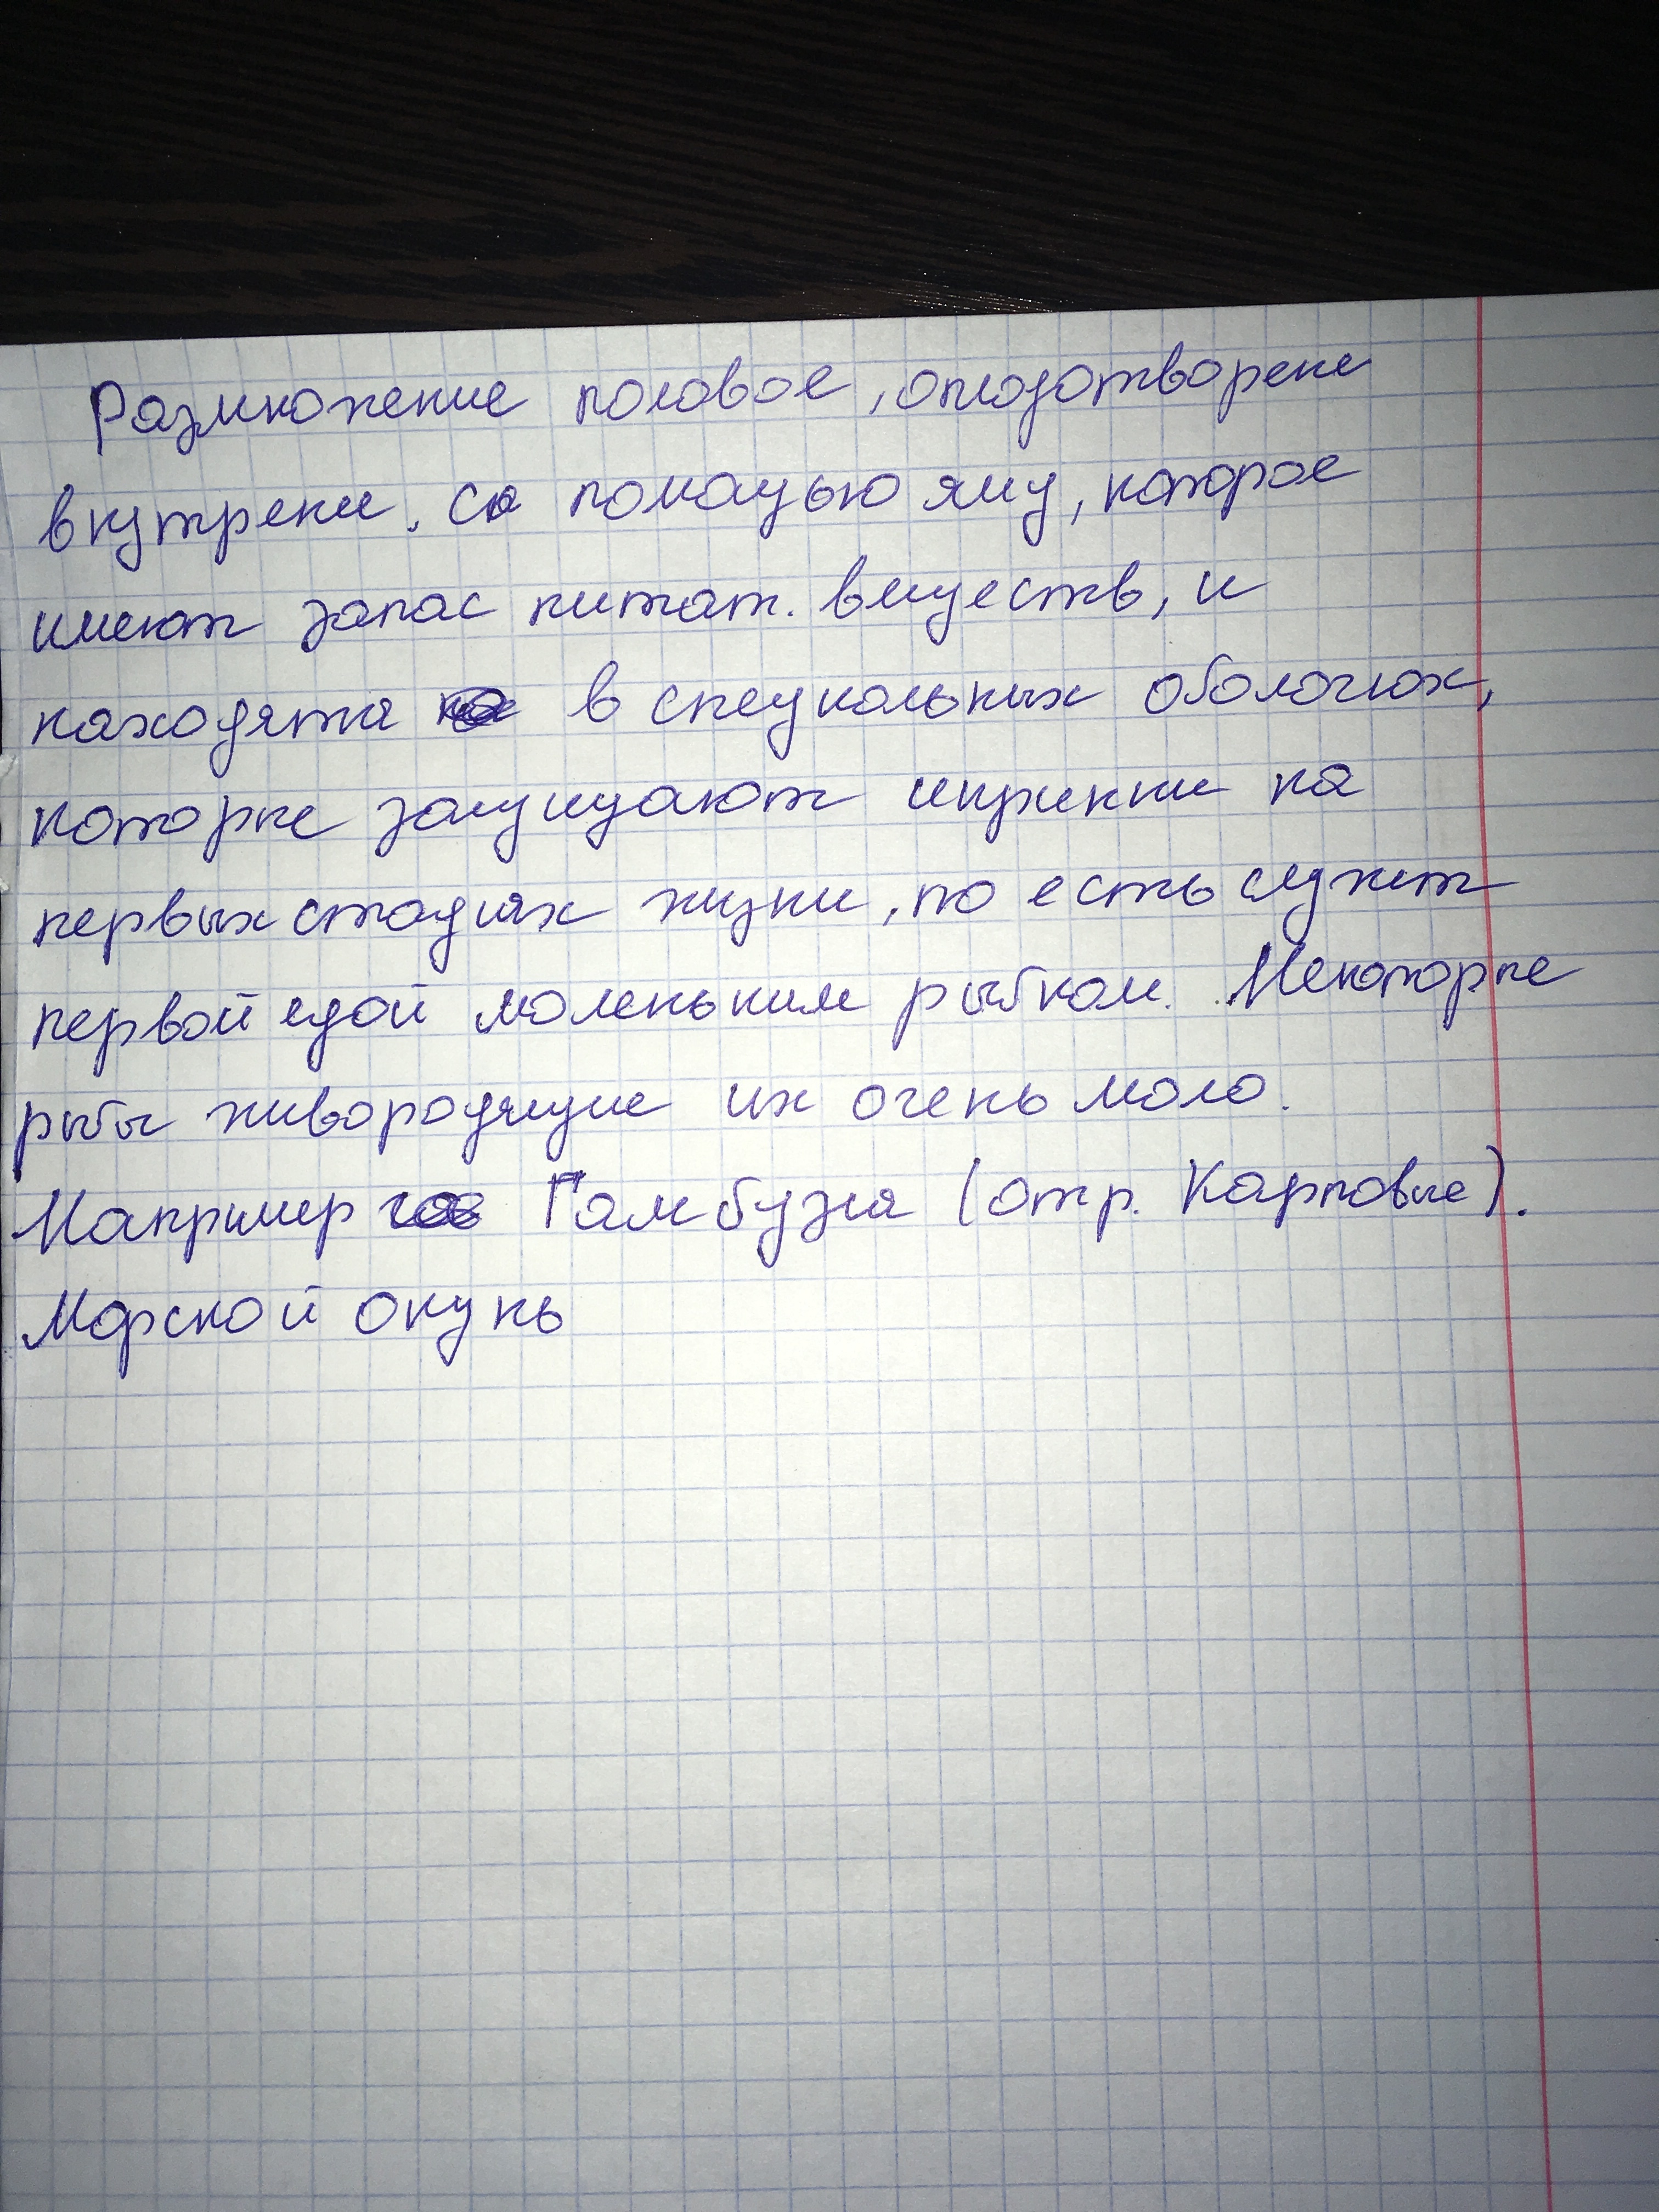 Размножение половое, оплодотворене
внутрени. С помощью яиц, которое
имеют запас питат. виществ, и
находятся в специальных оболочках,
которые защищают икринки на
первых стадиях жизни, то есть служит
первой едой маленьким рыбкам. Некоторые
рыбы живородящие их очень мало.
Например Гамбузия (отр. Карповые).
Морской окунь